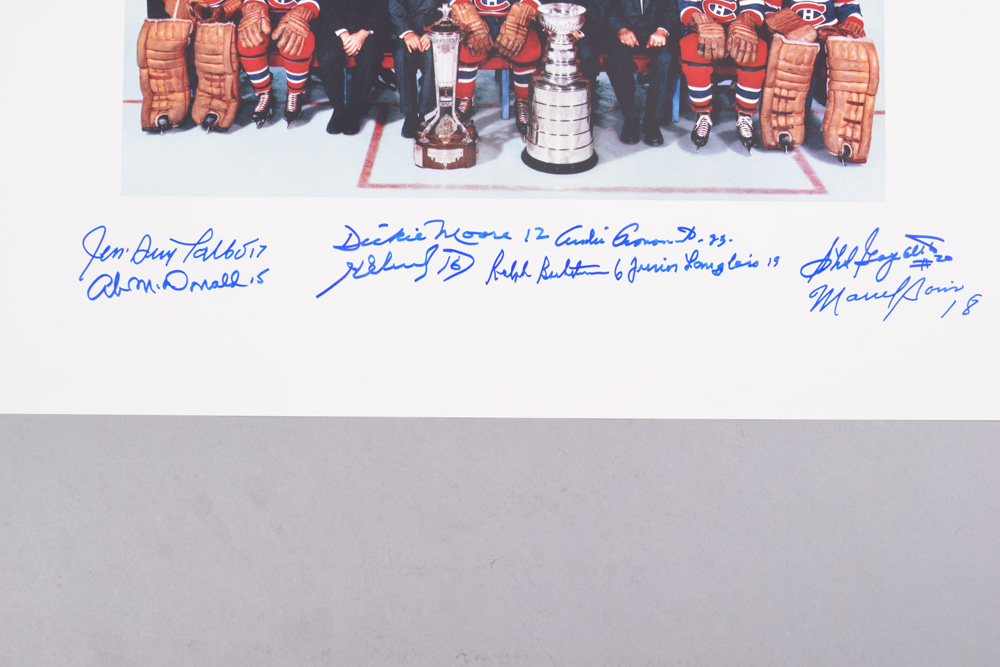 Jean Guy Talbot 17
Ab McDonald 15
Dickie Moore 12
H Richard 16
André Pronovost 23.
Ralph Backstrom 6
Junior Langlois 19
Phil Goyette #20
Marcel Bonin 18